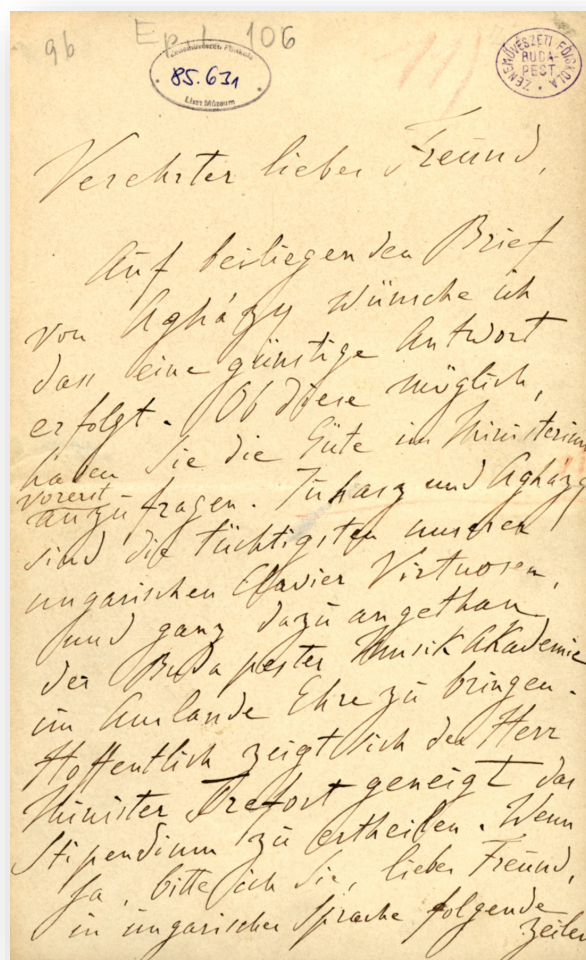 96
Ep. 1. 106
Zeneművészeti Főiskola
85.631
Liszt Múzeum
ZENEMŰVÉSZETI FŐISKOLA
BUDA-
PEST
Verehrter lieber Freund,
Auf beiliegenden Brief
von Agházy wünsche ich
dass eine günstige Antwort
erfolgt. Ob diese möglich,
haben Sie die Güte im Ministerium
vorerst
anzufragen. Juhasz und Agházy
sind die tüchtigsten unserer
ungarischen Clavier Virtuosen,
und ganz dazu angethan
der Buda pester Musik Akademie
im Auslande Ehre zu bringen.
Hoffentlich zeigt sich der Herr
Minister Trefort geneigt das
Stipendium zu ertheilen. Wenn
Ja, bitte ich Sie, lieber Freund,
in ungarischer Sprache folgende
Zeilen